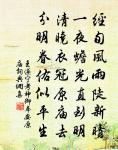 經旬風雨陡新晴
一夜蟾光直到明
清曉衣冠原廟去
分明眷佑似平生
寧考神御奉安原
廟詞